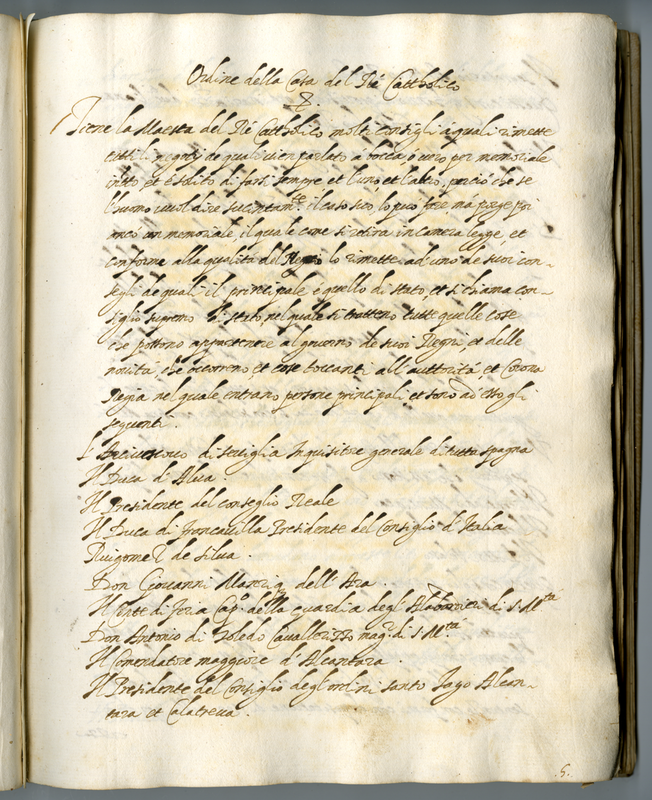 Ordine della Casa del Rè Cattholico
Tiene la Maestà del Rè Cattholico molti consigli à quali rimette
tutti li negotij de quali vien parlato a bocca, o vero per memoriale
et è solito di farsi sempre et l'uno et l'altro, perciò che se
l'huomo vuol dire succintam.te il caso suo, lo può fare, ma porge poi
anco un memoriale, il quale come si ritira in camera legge, et
conforme alla qualità del Negotio lo rimette ad uno de suoi con-
segli de quali il principale è quello di stato, et si chiama con-
siglio supremo di stato, nel quale si trattano tutte quelle cose
che possono appartenere al governo de suoi Regni, et delle
novità che occorrono et cose toccanti all'auttorità, et Corona
Regia nel quale entrano persone principali, et sono ad esso gli
seguenti.
L'Arcivescovo di Seviglia Inquisitore generale di tutta spagna
Il Duca d'Alva.
Il Presidente del conseglio Reale
Il Duca di Francavilla Presidente del Consiglio d'Italia
Ruigomez de Silva.
Don Giovanni Manriq. dell'Ara.
Il Conte di Feria Cap.o della guardia degl'Alabarderi di S. M.tà
Don Antonio di Toledo Cavallerizzo mag.r di S. M.tà
Il Comendatore maggiore d'Alcantara.
Il Presidente del Consiglio degl'ordini santo Jago Alcan-
tara et Calatrava.
5.